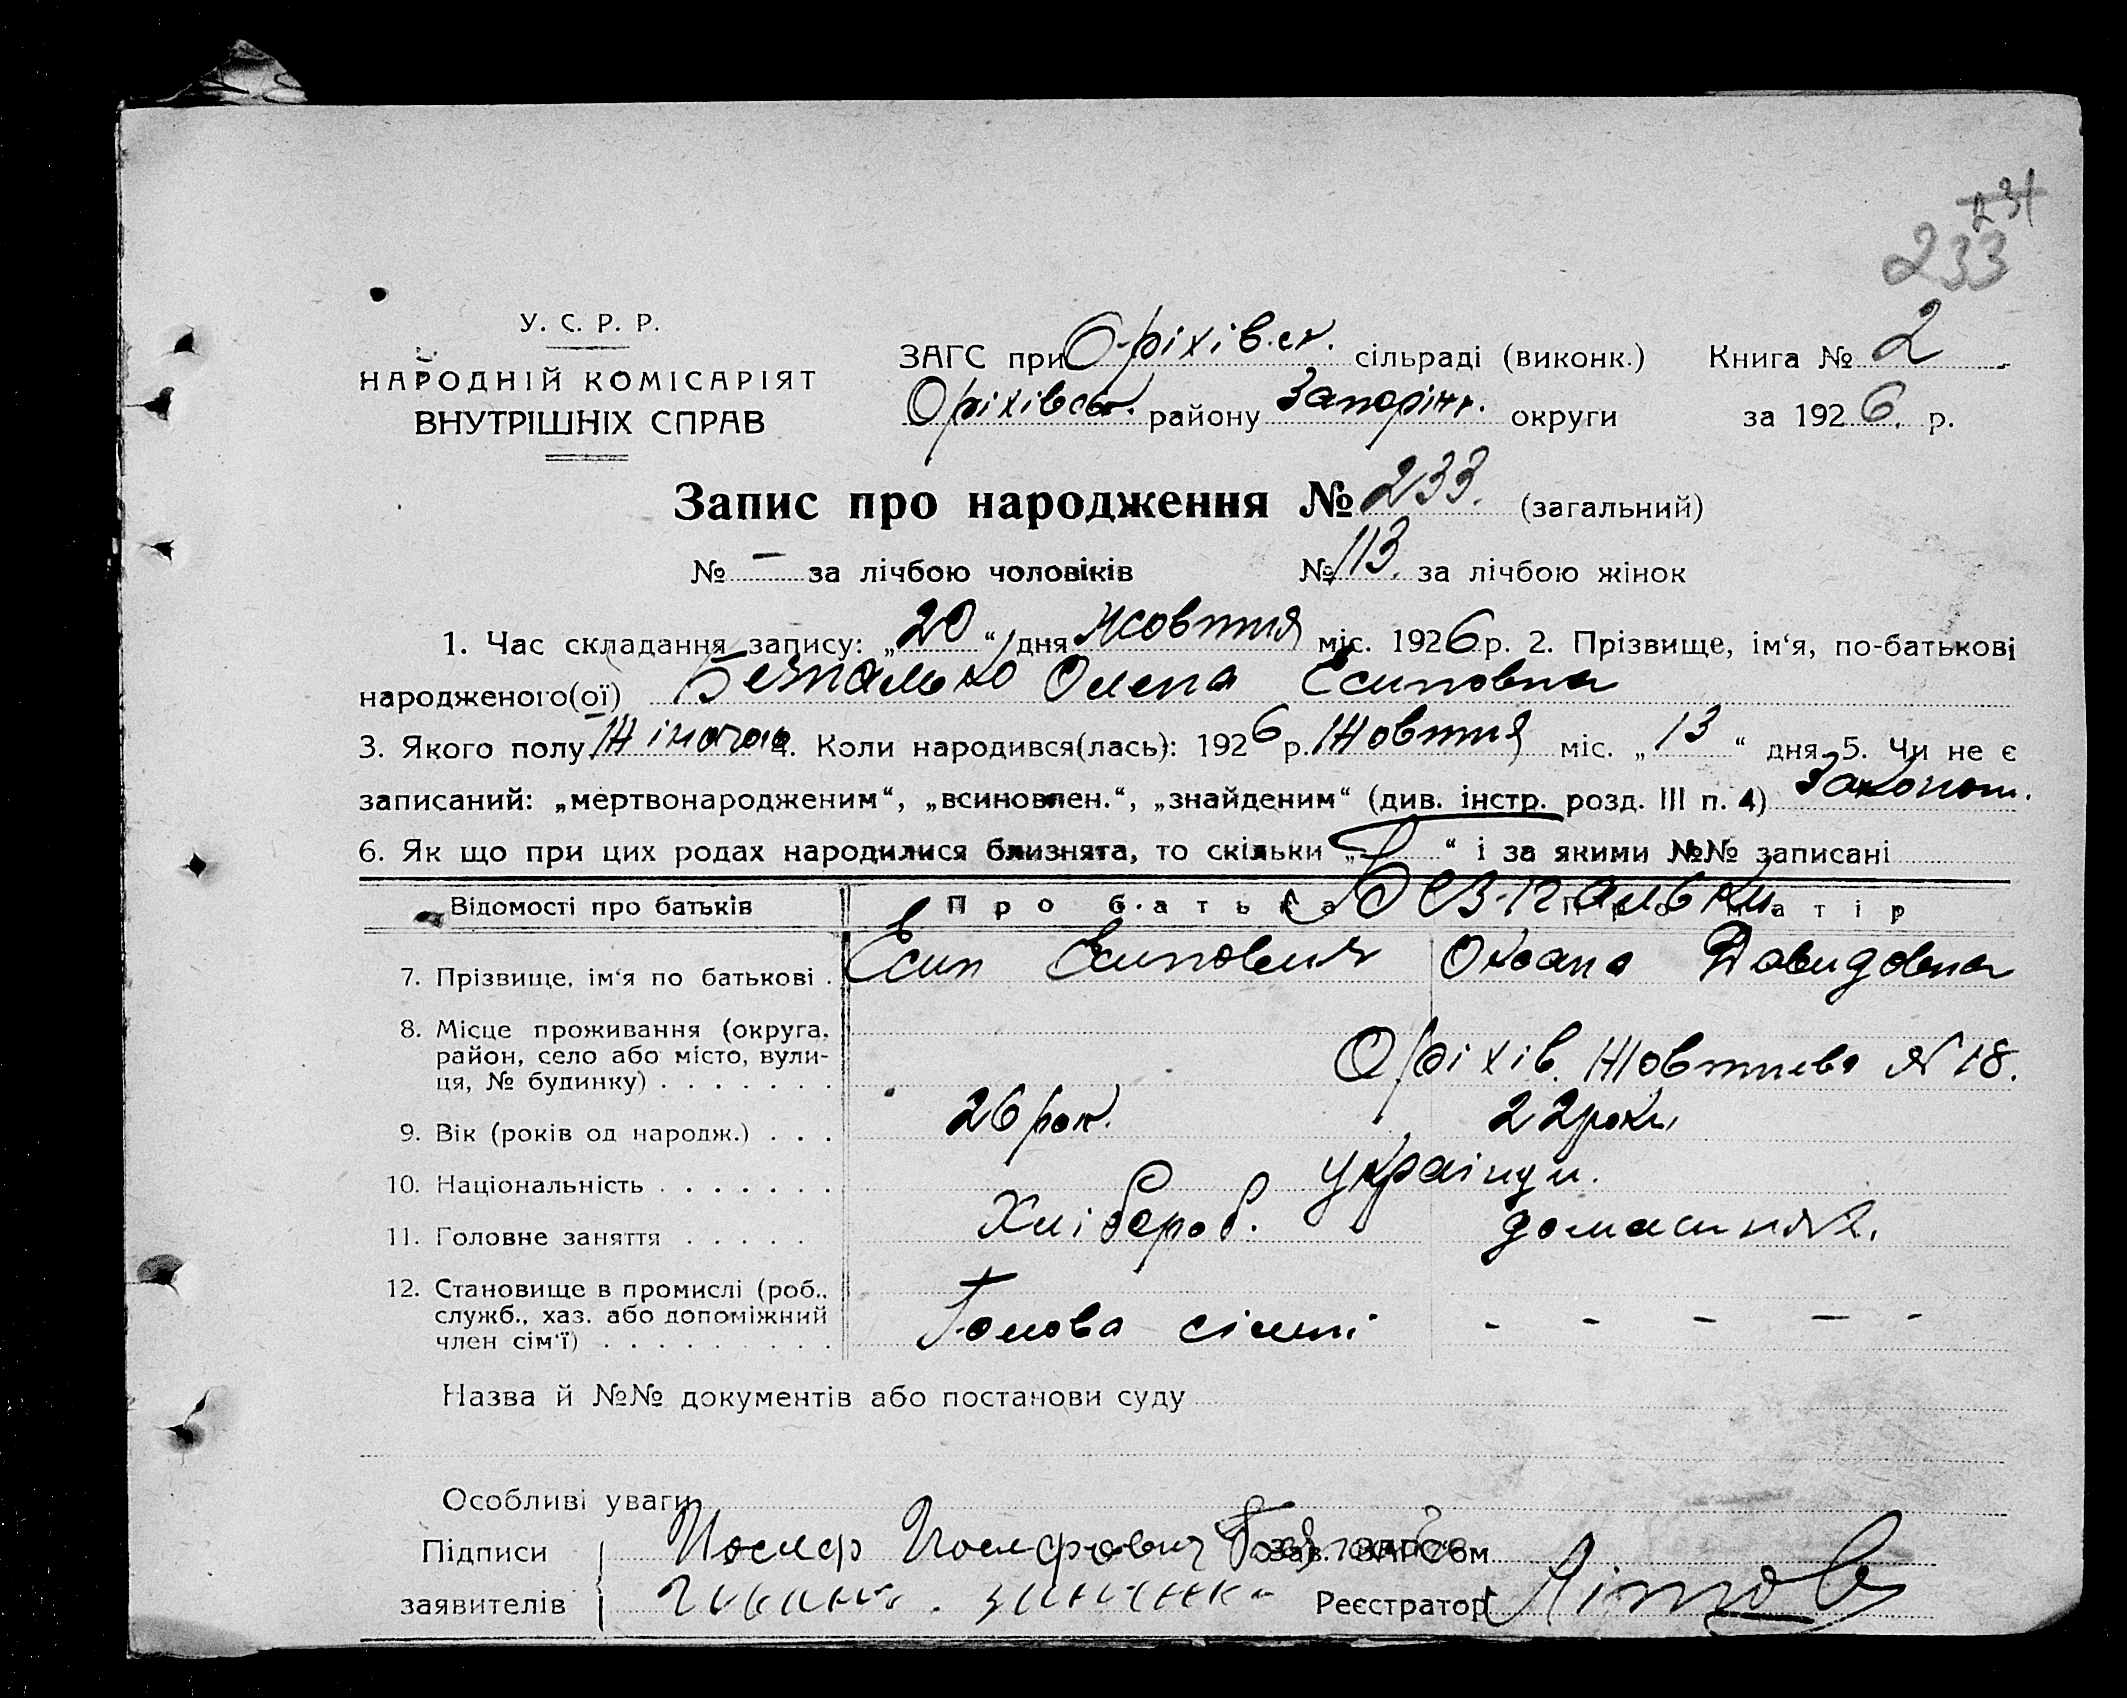 231
233
У. С. Р. Р.
НАРОДНІЙ КОМІСАРІЯТ
ВНУТРІШНІХ СПРАВ
ЗАГС при Оріхівск. сільраді (виконк.) Книга № 2
Оріхівськ. району Запоріж. округи за 1926 р.
Запис про народження № 233. (загальний)
№ – за лічбою чоловіків № 113. за лічбою жінок
1. Час складання запису: „20“ дня жовтня міс. 1926 р. 2. Прізвище, ім‘я, по-батькові
народженого(ої) Безпалько Олена Есиповна
3. Якого полу Жіночого 4. Коли народився(лась): 1926 р. Жовтня міс. „13“ дня 5. Чи не є
записаний: „мертвонародженим“, „всиновлен.“, „знайденим“ (див. інстр. розд. III п. 4) Законом.
6. Як що при цих родах народилися близнята, то скільки „ “ і за якими №№ записані
Відомості про батьків Про батька Про матір
Безпальки
7. Прізвище, ім‘я по батькові . Есип Есипович Оксана Давидовна
8. Місце проживання (округа,
район, село або місто, вули-
ця, № будинку) . . . . . . . Оріхів. Жовтнева № 18.
9. Вік (років од народж.) . . . 26 рок. 22 роки
10. Національність . . . . . . . українци.
11. Головне заняття . . . . . Хлібороб. домашня
12. Становище в промислі (роб.,
служб., хаз. або допоміжний
член сім‘ї) . . . . . . . . . Голова сімьі - - - - -
Назва й №№ документів або постанови суду
Особливі уваги
Підписи Иосиф Иосифович Зав. ЗАГС‘ом
заявителів Реєстратор